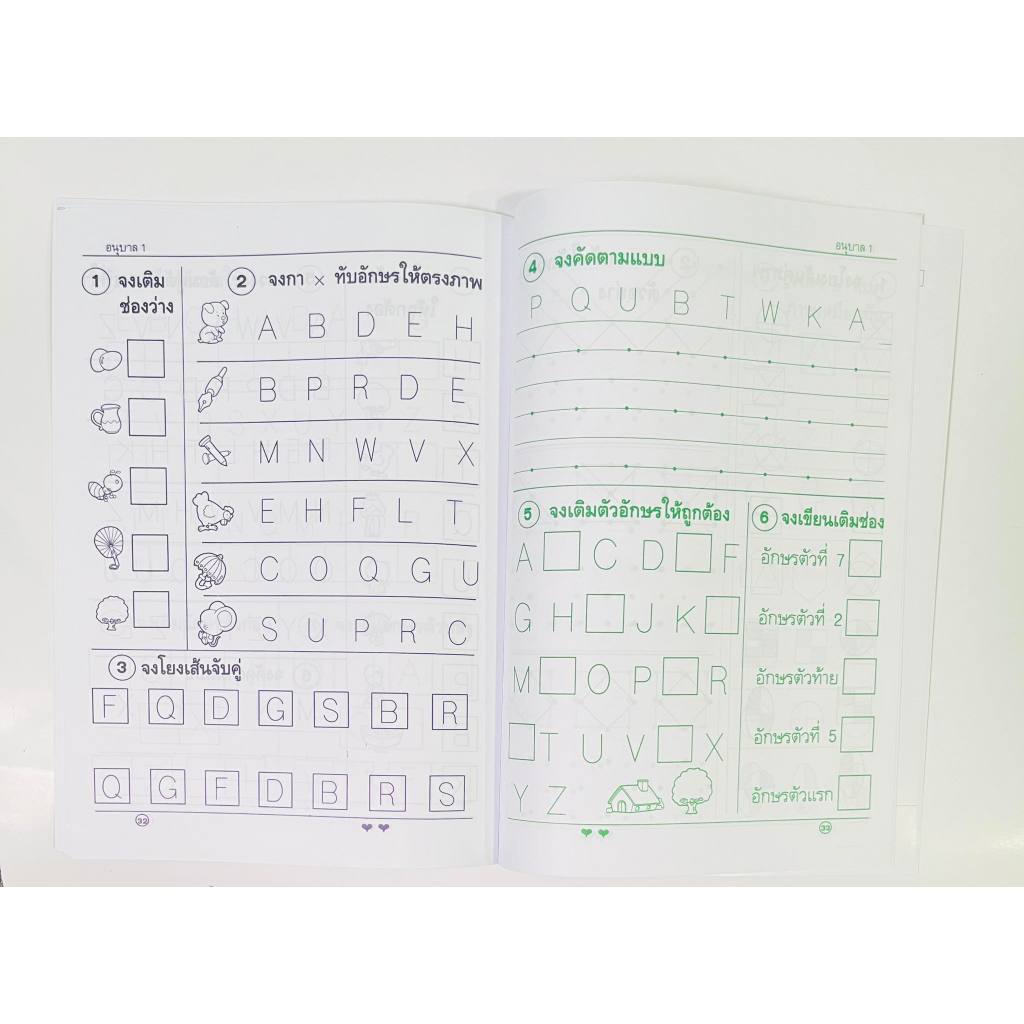 อนุบาล 1
1 จงเติม
ช่องว่าง
2 จงกา × ทับอักษรให้ตรงภาพ
A B D E H
B P R D E
M N W V X
E H F L T
C O Q G U
S U P R C
3 จงโยงเส้นจับคู่
F Q D G S B R
Q G F D B R S
32
อนุบาล 1
4 จงคัดตามแบบ
P Q U B T W K A
5 จงเติมตัวอักษรให้ถูกต้อง
A C D F
G H J K
M O P R
T U V X
Y Z
6 จงเขียนเติมช่อง
อักษรตัวที่ 7
อักษรตัวที่ 2
อักษรตัวท้าย
อักษรตัวที่ 5
อักษรตัวแรก
33